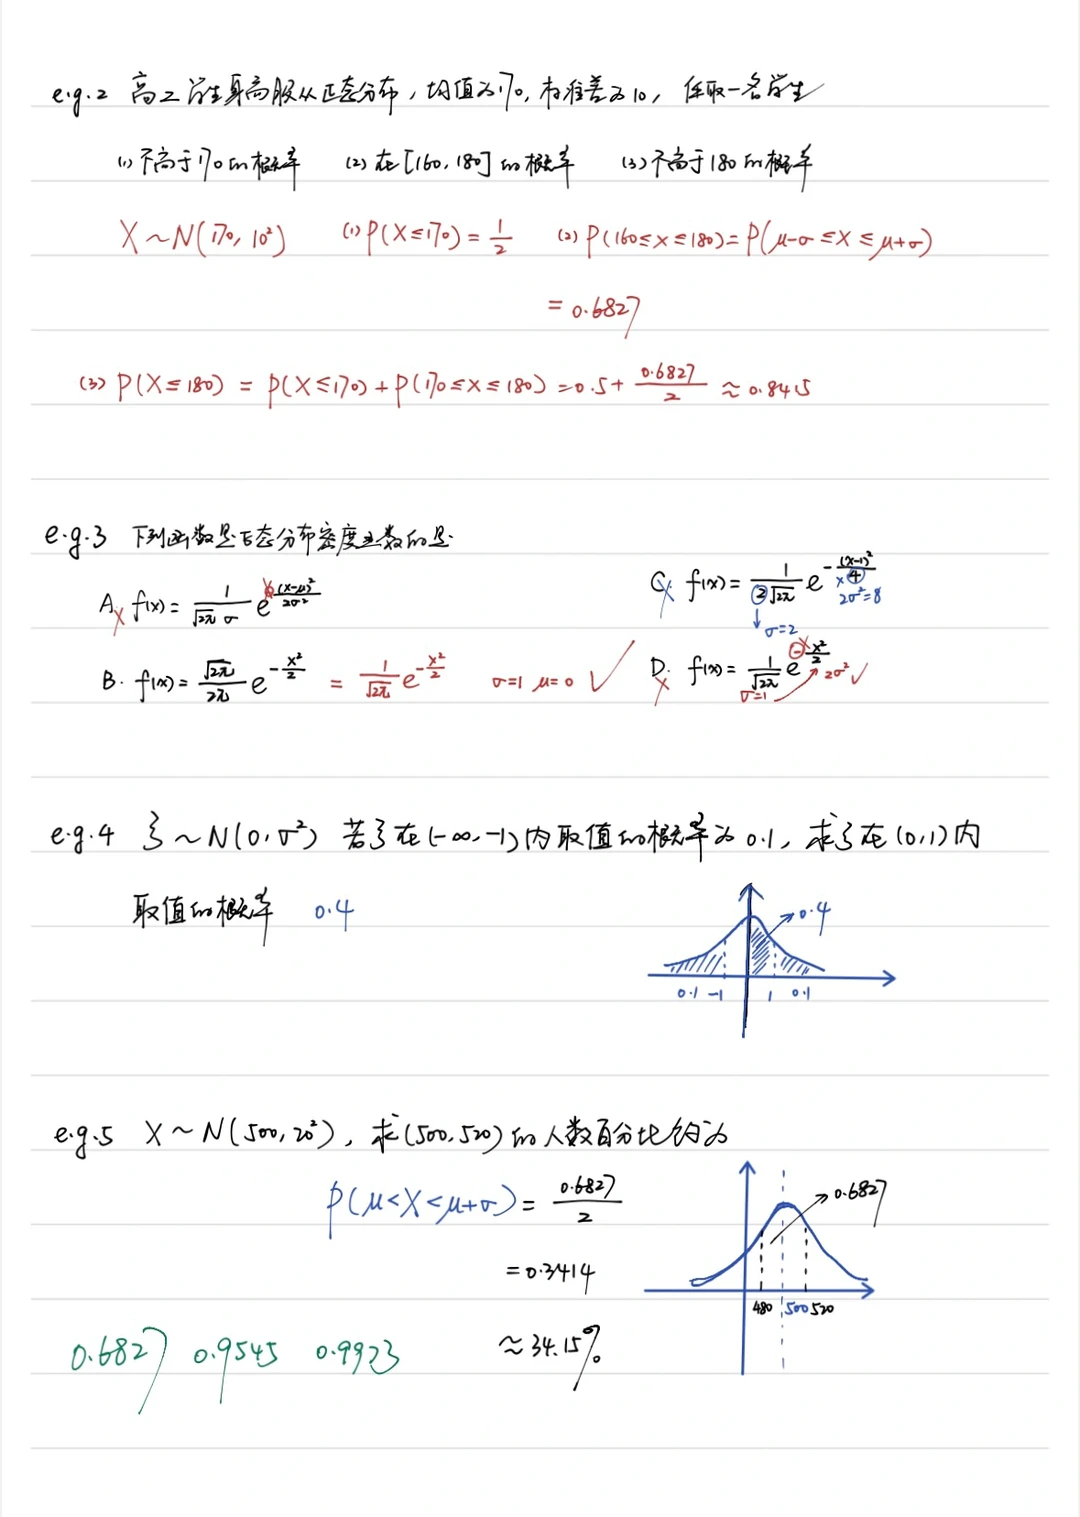 e.g.2 高二学生身高服从正态分布，均值为170，标准差为10，任取一名学生
(1) 不高于170的概率 (2) 在[160，180]的概率 (3) 不高于180的概率
X～N(170，10²) (1) P(X≤170)=1/2 (2) P(160≤x≤180)=P(μ-σ≤X≤μ+σ)
=0.6827
(3) P(X≤180) = P(X≤170)+P(170≤x≤180)=0.5+0.6827/2≈0.8415
e.g.3 下列函数是正态分布密度函数的是
A. f(x)=1/(√2π σ) e^((x-μ)²/2σ²)
C. f(x)=1/(2√2π) e^(-(x-1)²/4) 2σ²=8
σ=2
B. f(x)=√2π/2π e^(-x²/2) = 1/√2π e^(-x²/2) σ=1 μ=0 ✓
D. f(x)=1/√2π e^(-x²/2) 2σ² ✓
σ=1
e.g.4 ξ～N(0,σ²) 若ξ在(-∞,-1)内取值的概率为0.1，求ξ在(0,1)内
取值的概率 0.4
0.4
0.1 -1 1 0.1
e.g.5 X～N(500，20²)，求(500,520)的人数百分比约为
P(μ<X<μ+σ)=0.6827/2
0.6827
=0.3414
480 500 520
≈34.15%
0.6827 0.9545 0.9973